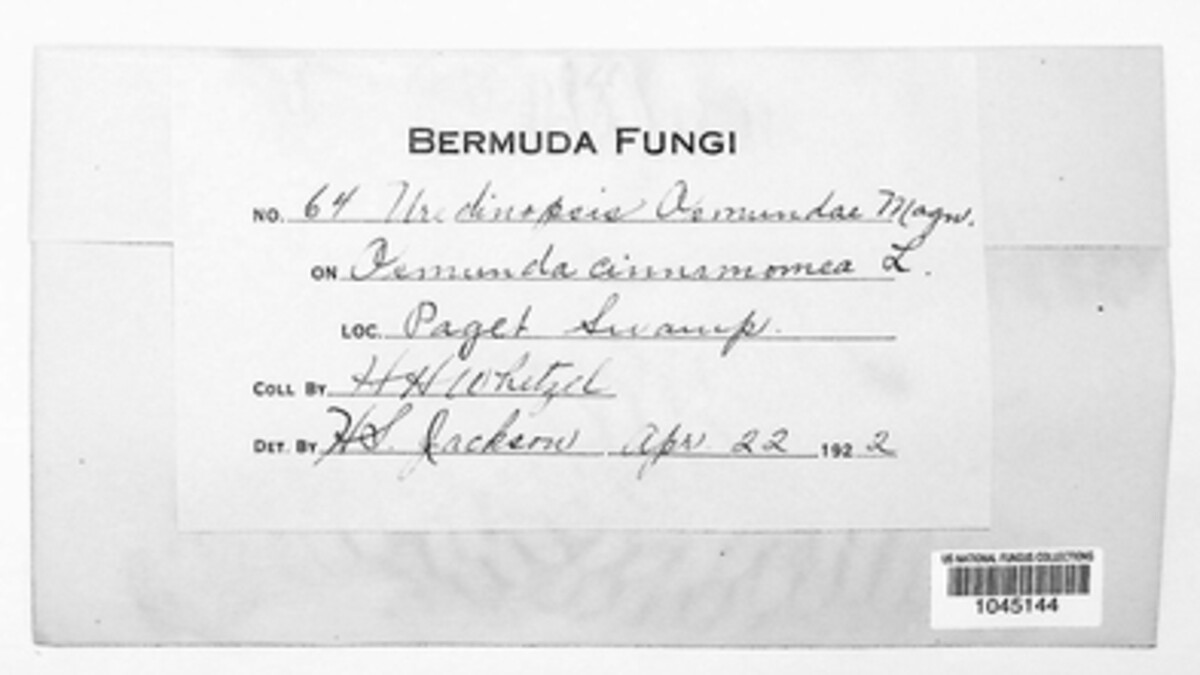 BERMUDA FUNGI
NO. 64 Uredinopsis Osmundae Magn.
ON Osmunda cinnamomea L.
LOC. Paget Swamp.
COLL BY H H Whetzel
DET. BY H.S. Jackson Apr. 22 1922
US NATIONAL FUNGUS COLLECTIONS
1045144